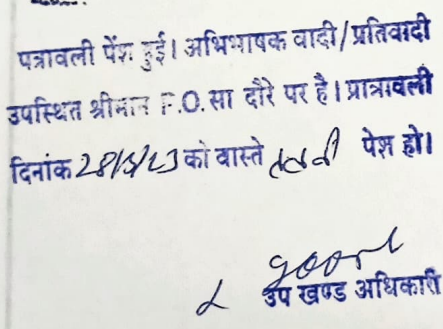 पत्रावली पेंश हुई। अभिभाषक वादी/प्रतिवादी
उपस्थित श्रीमान P.O. सा दौरे पर है। प्रात्रावली
दिनांक को वास्ते पेश हो।
उप खण्ड अधिकारी